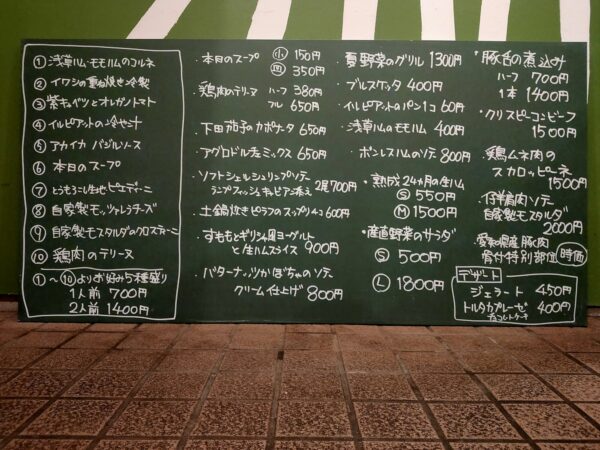 ① 浅草ハム・モモハムのコルネ
② イワシの重ね焼き冷製
③ 紫キャベツとオレガノトマト
④ イルピアットの冷や汁
⑤ アカイカ バジルソース
⑥ 本日のスープ
⑦ とうもろこし生地ピエディーニ
⑧ 自家製モッツァレラチーズ
⑨ 自家製モスタルダのクロスティーニ
⑩ 鶏肉のテリーヌ
①〜⑩よりお好み5種盛り
1人前 700円
2人前 1400円
・本日のスープ 小 150円
皿 350円
・鶏肉のテリーマ ハーフ 380円
フル 650円
・下田茄子のカポナータ 650円
・アグロドルチェミックス 650円
・ソフトシェルシュリンプソテー
ランプフィッシュキャビア添え 2尾700円
・土鍋炊きピラフのスップリ4コ 600円
・すももとギリシャ風ヨーグルト
と生ハムスライス 900円
・バターナッツかぼちゃのソテー
クリーム仕上げ 800円
・夏野菜のグリル 1300円
・ブルスケッタ 400円
・イルピアットのパン1コ 60円
・浅草ハムのモモハム 400円
・ボンレスハムのソテー 800円
・熟成24ヵ月の生ハム
Ⓢ 550円
Ⓜ 1500円
・産直野菜のサラダ
Ⓢ 500円
Ⓛ 1800円
・豚舌の煮込み
ハーフ 700円
1本 1400円
・クリスピーコンビーフ
1500円
・鶏ムネ肉の
スカロッピーネ
1500円
・仔羊肩肉ソテー
自家製モスタルダ
2000円
・愛知県産豚肉
骨付特別部位 時価
デザート
ジェラート 450円
トルタカプレーゼ 400円
チョコレートケーキ